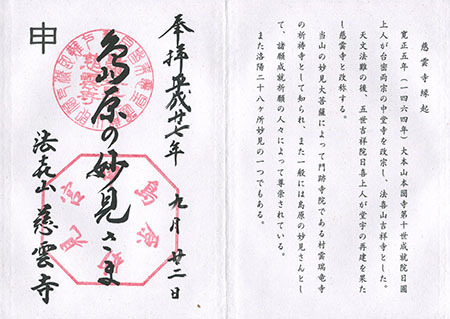 慈雲寺縁起
寛正五年(一四六四年)大本山本圀寺第十世成就院日圓
上人が台密両宗の中堂寺を改宗し、法喜山吉祥寺とした。
天文法難の後、五世吉祥院日喜上人が堂宇の再建を果た
し慈雲寺と改称する。
当山の妙見大菩薩によって門跡寺院である村雲瑞竜寺
の祈祷寺として知られ、また一般には島原の妙見さんとし
て、諸願成就祈願の人々によって尊崇されている。
また洛陽二十八ヶ所妙見の一つでもある。
奉拝 平成廿七年 九月 廿二日
島原の妙見さま
法㐂山 慈雲寺
申